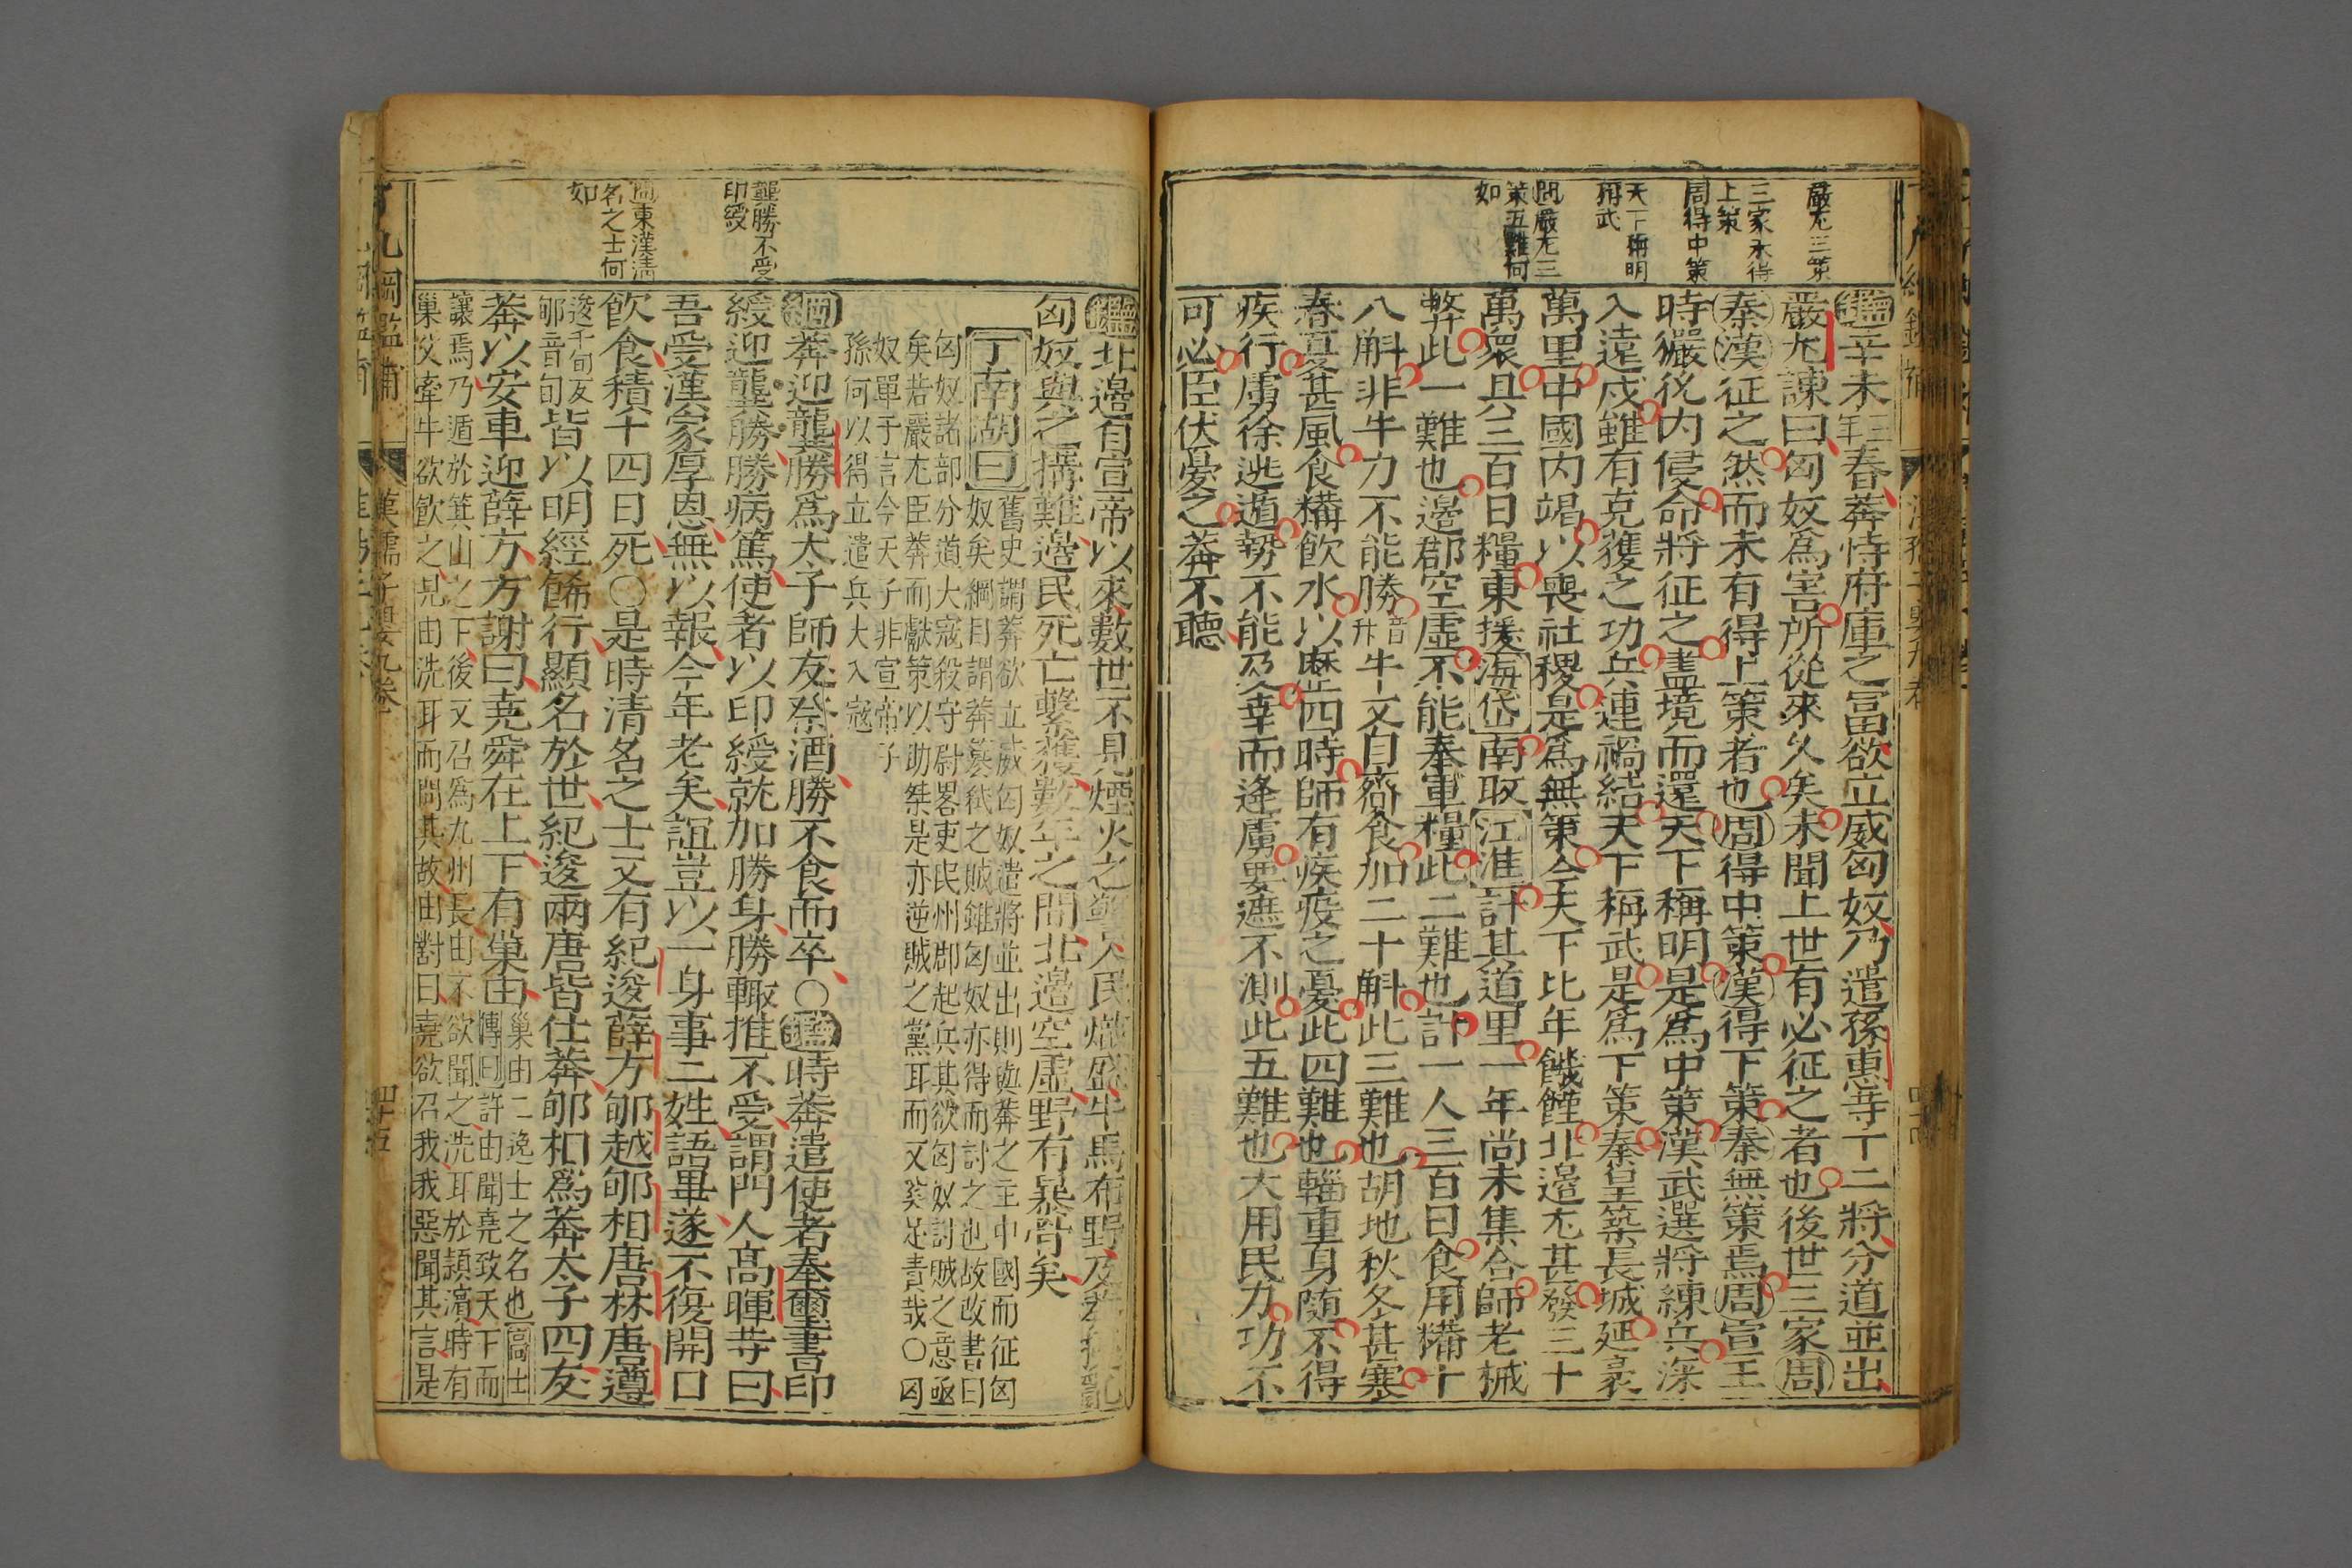 嚴尤三策
三家未得
上策
周得中策
天下稱明
稱武
問嚴尤三
策五難何
如
鑑辛未三年春莽恃府庫之富欲立威匈奴乃遣孫惠等十二將分道並出
嚴尤諫曰匈奴爲害所從來久矣未聞上世有必征之者也後世三家周
秦漢征之然而未有得上策者也周得中策漢得下策秦無策焉周宣王
時玁狁内侵命將征之盡境而還天下稱明是爲中策漢武選將練兵深
入遠戍雖有克獲之功兵連禍結天下稱武是爲下策秦皇築長城延袤
萬里中國内竭以喪社稷是爲無策今天下比年饑饉北邊尤甚發三十
萬衆具三百日糧東援海岱南取江淮計其道里一年尚未集合師老械
弊此一難也邊郡空虛不能奉軍糧此二難也計一人三百日食用糒十
八斛非牛力不能勝音升牛又自齎食加二十斛此三難也胡地秋冬甚寒
春夏甚風食糒飲水以歷四時師有疾疫之憂此四難也輜重身隨不得
疾行虜徐逃遁勢不能及幸而逢虜要遮不測此五難也大用民力功不
可必臣伏憂之莽不聽
龔勝不受
印綬
問東漢清
名之士何
如
鑑北邊自宣帝以來數世不見煙火之警人民熾盛牛馬布野及莽撓亂
匈奴與之搆難邊民死亡繫獲數年之間北邊空虛野有暴骨矣
丁南湖曰舊史謂莽欲立威匈奴遣將並出則與莽之主中國而征匈
奴矣綱目謂莽簒弑之賊雖匈奴亦得而討之也故改書曰
匈奴諸部分道大寇殺守尉畧吏民州郡起兵其欲匈奴討賊之意亟
矣若嚴尤臣莽而獻策以助桀是亦逆賊之黨耳而又奚足責哉〇匈
奴單于言今天子非宣帝子
孫何以得立遣兵大入寇
綱莽迎龔勝爲太子師友祭酒勝不食而卒〇鑑時莽遣使者奉璽書印
綬迎龔勝勝病篤使者以印綬就加勝身勝輙推不受謂門人高暉等曰
吾受漢家厚恩無以報今年老矣誼豈以一身事二姓語畢遂不復開口
飲食積十四日死〇是時清名之士又有紀逡薛方郇越郇相唐林唐遵
逡千旬反
郇音旬皆以明經飭行顯名於世紀逡兩唐皆仕莽郇相爲莽太子四友
莽以安車迎薛方方謝曰堯舜在上下有巢由巢由二逸士之名也高士
傳曰許由聞堯致天下而
讓焉乃遁於箕山之下後又召爲九州長由不欲聞之洗耳於潁濱時有
巢父牽牛欲飮之見由洗耳而問其故由對曰堯欲召我我惡聞其言是
四十五